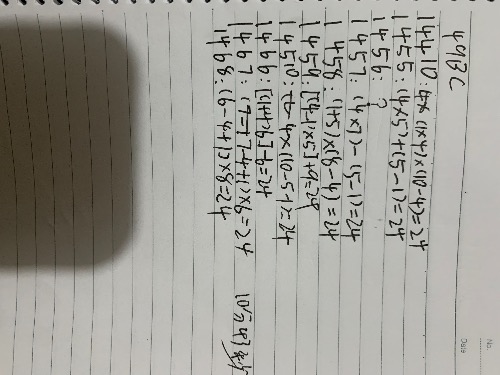 No.
Date
493C
1 4 4 10: (1×4)×(10-4)=24
1 4 5 5: (4×5)+(5-1)=24
1 4 5 6: ?
1 4 5 7: (4×7)-(5-1)=24
1 4 5 8: (1+5)×(8-4)=24
1 4 5 9: [(4-1)×5]+9=24
1 4 5 10: 4×(10-5+1)=24
1 4 6 6: [(1+4)×6]-6=24
1 4 6 7: (7-4+1)×6=24
1 4 6 8: (6-4+1)×8=24